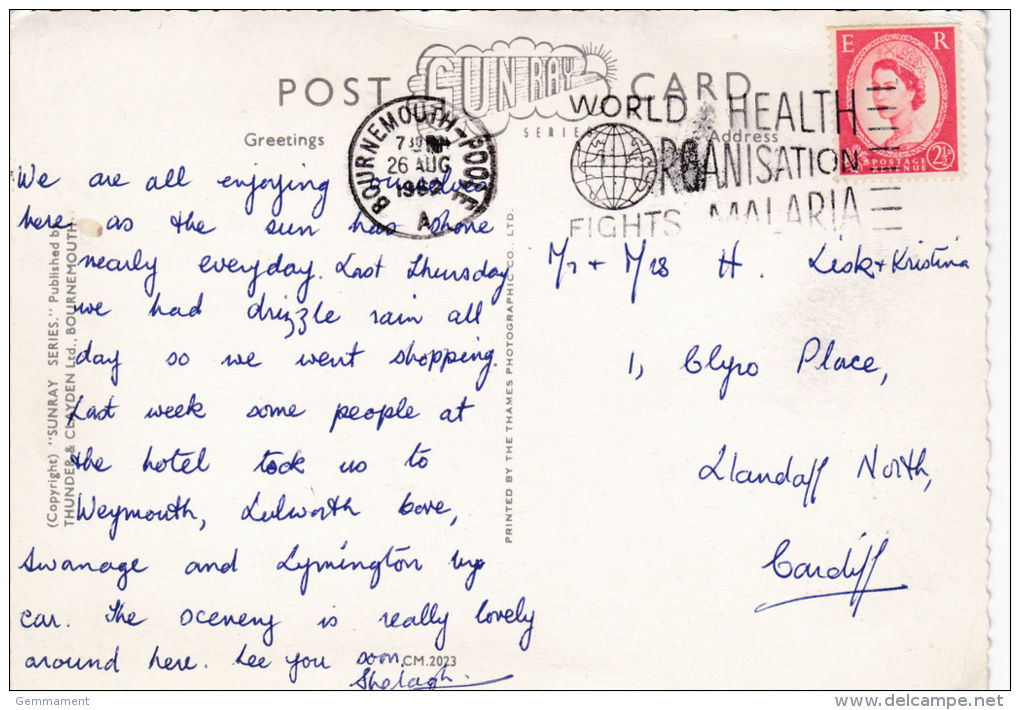 POST CARD
SUNRAY
SERIES
Greetings
Address
E R
POSTAGE
REVENUE
2½D
BOURNEMOUTH-POOLE
26 AUG
1962
A
WORLD HEALTH
ORGANISATION
FIGHTS MALARIA
We are all enjoying ourselves
here as the sun has shone
nearly everyday. Last Thursday
we had drizzle rain all
day so we went shopping.
Last week some people at
the hotel took us to
Weymouth, Lulworth Cove,
Swanage and Lymington by
car. The scenery is really lovely
around here. See you soon.
Shelagh.
Mr + Mrs H. Lisk + Kristina
1, Clyro Place,
Llandaff North,
Cardiff
(Copyright) "SUNRAY SERIES." Published by
THUNDER & CLAYDEN Ltd., BOURNEMOUTH.
PRINTED BY THE THAMES PHOTOGRAPHIC CO. LTD.
CM.2023
Gemmament
www.delcampe.net